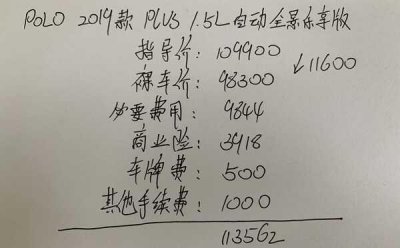 POLO 2019款 PLUS 1.5L自动全景乐享版
指导价: 109900
裸车价: 98300 ↓11600
必要费用: 9844
商业险: 3918
车牌费: 500
其他手续费: 1000
113562